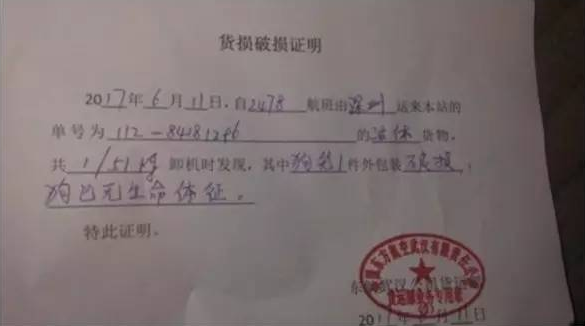 货损破损证明
2017年6月11日,自2478航班由深圳运来本站的
单号为112-84281296的活体货物,
共1/51kg卸机时发现,其中狗笼1件外包装破损,
狗已无生命体征。
特此证明。
东方航空武汉有限责任公司
货运部业务专用章